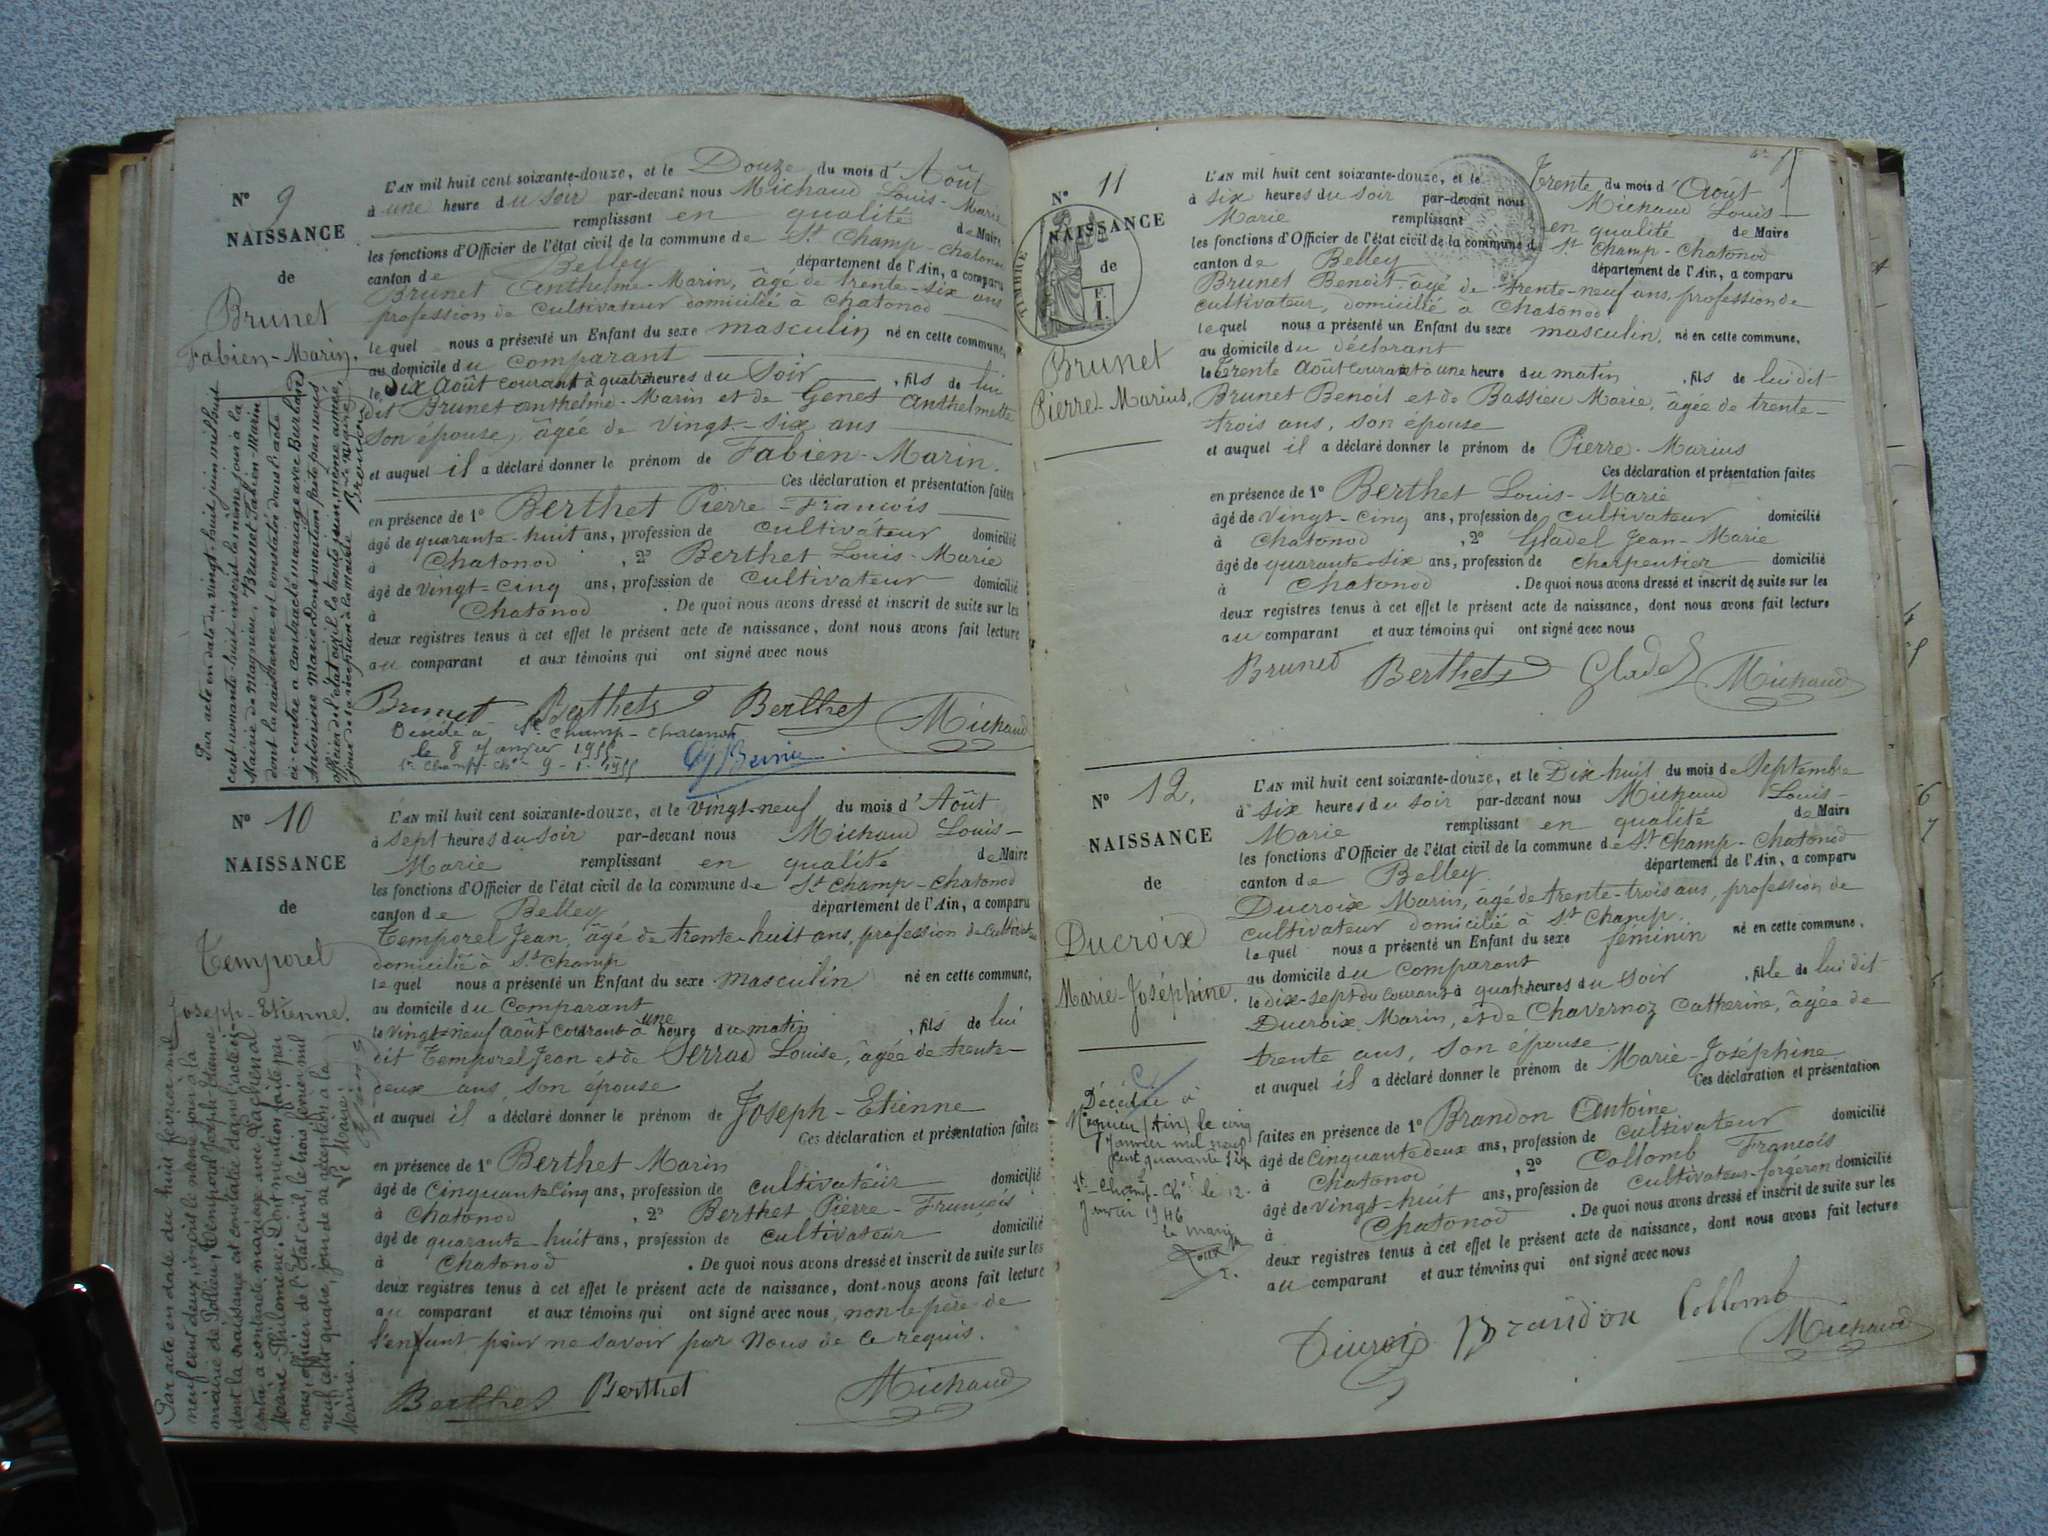 N° 9
NAISSANCE
de
Brunet
Fabien-Marin.
L'AN mil huit cent soixante-douze, et le Douze du mois d'Août
à une heure du soir par-devant nous Michaud Louis-Marie
remplissant en qualité de Maire
les fonctions d'Officier de l'état civil de la commune de St Champ-Chatonod
canton de Belley département de l'Ain, a comparu
Brunet Anthelme-Marin, âgé de trente-six ans
profession de cultivateur domicilié à Chatonod
lequel nous a présenté un Enfant du sexe masculin né en cette commune,
au domicile du comparant
le, Dix Août courant à quatre heures du Soir, fils de lui
dit Brunet Anthelme-Marin et de Genet Anthelmette
son épouse, âgée de vingt-six ans
et auquel il a déclaré donner le prénom de Fabien-Marin.
Ces déclaration et présentation faites
en présence de 1° Berthet Pierre-François
âgé de quarante-huit ans, profession de cultivateur domicilié
à Chatonod, 2° Berthet Louis-Marie
âgé de vingt-cinq ans, profession de cultivateur domicilié
à Chatonod. De quoi nous avons dressé et inscrit de suite sur les
deux registres tenus à cet effet le présent acte de naissance, dont nous avons fait lecture
au comparant et aux témoins qui ont signé avec nous
Brunet Berthet Berthet Michaud
Décédé à St Champ-Chatonod
le 8 Janvier 1955
St Champ-Ch 9-1-1955
Par acte en date du vingt-huit juin mil huit
cent nonante-huit inscrit le même jour à la
Mairie de Magnieu, Brunet Fabien-Marin
dont la naissance est constatée dans l'acte
ci-contre a contracté mariage avec
Antonine Marie. Dont mention faite par nous
officier de l'état civil, le trente juin, même année,
jour de sa réception à la mairie
N° 10
NAISSANCE
de
Temporel
Joseph-Etienne.
L'AN mil huit cent soixante-douze, et le vingt-neuf du mois d'Août
à sept heures du soir par-devant nous Michaud Louis-
Marie remplissant en qualité de Maire
les fonctions d'Officier de l'état civil de la commune de St Champ-Chatonod
canton de Belley département de l'Ain, a comparu
Temporel Jean, âgé de trente-huit ans, profession de cultivateur
domicilié à St Champ
lequel nous a présenté un Enfant du sexe masculin né en cette commune,
au domicile du Comparant
le vingt-neuf août courant à une heure du matin, fils de lui
dit Temporel Jean et de Serrad Louise, âgée de trente-
deux ans, son épouse
et auquel il a déclaré donner le prénom de Joseph-Etienne
Ces déclaration et présentation faites
en présence de 1° Berthet Marin
âgé de Cinquante Cinq ans, profession de cultivateur domicilié
à Chatonod, 2° Berthet Pierre-François
âgé de quarante-huit ans, profession de cultivateur domicilié
à Chatonod. De quoi nous avons dressé et inscrit de suite sur les
deux registres tenus à cet effet le présent acte de naissance, dont nous avons fait lecture
au comparant et aux témoins qui ont signé avec nous, non le père de
l'enfant pour ne savoir par Nous de ce requis.
Berthet Berthet Michaud
Par acte en date du huit février mil
neuf cent deux, inscrit le même jour à la
mairie de Pollieu, Temporel Joseph-Etienne
dont la naissance est constatée dans l'acte ci-
contre a contracté mariage avec
Marie-Philomène. Dont mention faite par
nous, officier de l'Etat civil, le trois février mil
neuf cent quatre, jour de sa réception à la
Mairie. Le Maire,
N° 11
NAISSANCE
de
TIMBRE
F.
1.
Brunet
Pierre-Marius,
L'AN mil huit cent soixante-douze, et le Trente du mois d'Août
à six heures du soir par-devant nous Michaud Louis-
Marie remplissant en qualité de Maire
les fonctions d'Officier de l'état civil de la commune de St Champ-Chatonod
canton de Belley département de l'Ain, a comparu
Brunet Benoit, âgé de trente-neuf ans, profession de
cultivateur, domicilié à Chatonod
lequel nous a présenté un Enfant du sexe masculin, né en cette commune,
au domicile du déclarant
le Trente Août courant à une heure du matin, fils de lui dit
Brunet Benoit et de Bassieu Marie, âgée de trente-
trois ans, son épouse
et auquel il a déclaré donner le prénom de Pierre-Marius
Ces déclaration et présentation faites
en présence de 1° Berthet Louis-Marie
âgé de vingt-cinq ans, profession de cultivateur domicilié
à Chatonod, 2° Gladel Jean-Marie
âgé de quarante-six ans, profession de charpentier domicilié
à Chatonod. De quoi nous avons dressé et inscrit de suite sur les
deux registres tenus à cet effet le présent acte de naissance, dont nous avons fait lecture
au comparant et aux témoins qui ont signé avec nous
Brunet Berthet Gladel Michaud
N° 12.
NAISSANCE
de
Ducroix
Marie-Joséphine.
L'AN mil huit cent soixante-douze, et le Dix huit du mois de Septembre
à six heures du soir par-devant nous Michaud Louis-
Marie remplissant en qualité de Maire
les fonctions d'Officier de l'état civil de la commune de St Champ-Chatonod
canton de Belley département de l'Ain, a comparu
Ducroix Marin, âgé de trente-trois ans, profession de
cultivateur domicilié à St Champ.
lequel nous a présenté un Enfant du sexe féminin né en cette commune,
au domicile du comparant
le dix-sept du courant à quatre heures du soir, fille de lui dit
Ducroix, Marin, et de Chavernoz Catherine, âgée de
trente ans, son épouse
et auquel il a déclaré donner le prénom de Marie-Joséphine
Ces déclaration et présentation
faites en présence de 1° Brandon Antoine
âgé de Cinquante deux ans, profession de cultivateur domicilié
à Chatonod, 2° Collomb François
âgé de vingt-huit ans, profession de cultivateur-forgeron domicilié
à Chatonod. De quoi nous avons dressé et inscrit de suite sur les
deux registres tenus à cet effet le présent acte de naissance, dont nous avons fait lecture
au comparant et aux témoins qui ont signé avec nous
Ducroix Brandon Collomb Michaud
Décédée à
Magnieu (Ain) le cinq
Janvier mil neuf
cent quarante six
St-Champ-Ch le 12
Janvier 1946
Le maire